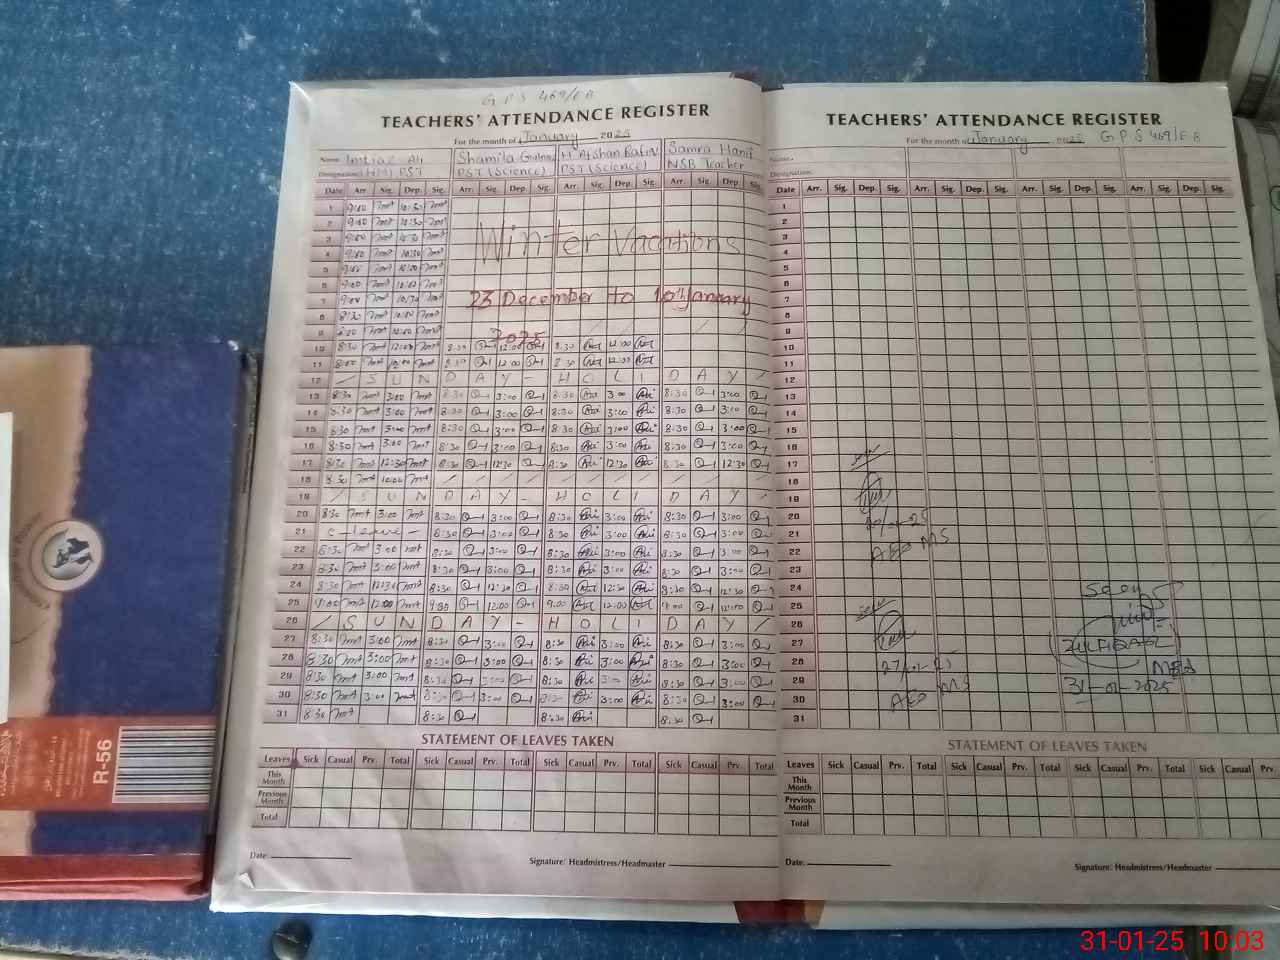 GPS 469/EB
TEACHERS' ATTENDANCE REGISTER
For the month of January 2025
Name Imtiaz Ali Shamila H Afshan Samra Hanif
Designation HM PST PST (Science) PST (Science) NSB Teacher
Date Arr. Sig. Dep. Sig. Arr. Sig. Dep. Sig. Arr. Sig. Dep. Sig. Arr. Sig. Dep Sig.
1 9:00 10:30
2 9:00 10:30
3 9:00 10:30
4 9:00 10:30
5 9:00 10:00
6 9:00 10:00
7 9:00 10:30
8 8:30 10:00
9 9:00 12:00
Winter Vacations
23 December to 10th January
2025
10 8:30 12:00 8:30 12:00 8:30 12:00
11 8:00 12:00 8:30 12:00 8:30 12:00
12 / S U N D A Y - H O L I D A Y /
13 8:30 3:00 8:30 3:00 8:30 3:00 8:30 3:00
14 8:30 3:00 8:30 3:00 8:30 3:00 8:30 3:00
15 8:30 3:00 8:30 3:00 8:30 3:00 8:30 3:00
16 8:30 3:00 8:30 3:00 8:30 3:00 8:30 3:00
17 8:30 12:30 8:30 12:30 8:30 12:30 8:30 12:30
18 8:30 10:00
19 / S U N D A Y - H O L I D A Y /
20 8:30 3:00 8:30 3:00 8:30 3:00 8:30 3:00
21 C-leave - 8:30 3:00 8:30 3:00 8:30 3:00
22 8:30 3:00 8:30 3:00 8:30 3:00 8:30 3:00
23 8:30 3:00 8:30 3:00 8:30 3:00 8:30 3:00
24 8:30 12:30 8:30 12:30 8:30 12:30 8:30 12:30
25 9:00 12:00 9:00 12:00 9:00 12:00 9:00 12:00
26 / S U N D A Y - H O L I D A Y /
27 8:30 3:00 8:30 3:00 8:30 3:00 8:30 3:00
28 8:30 3:00 8:30 3:00 8:30 3:00 8:30 3:00
29 8:30 3:00 8:30 3:00 8:30 3:00 8:30 3:00
30 8:30 3:00 8:30 3:00 8:30 3:00 8:30 3:00
31 8:30 8:30 8:30 8:30
STATEMENT OF LEAVES TAKEN
Leaves Sick Casual Prv. Total Sick Casual Prv. Total Sick Casual Prv. Total Sick Casual Prv. Total
This Month
Previous Month
Total
Date:
Signature: Headmistress/Headmaster
TEACHERS' ATTENDANCE REGISTER
For the month of January 2025 GPS 469/EB
Name.
Designation:
Date Arr. Sig. Dep. Sig. Arr. Sig. Dep. Sig. Arr. Sig. Dep. Sig. Arr. Sig. Dep. Sig.
1
2
3
4
5
6
7
8
9
10
11
12
13
14
15
16
17
18
19
20
21
22
23
24
25
26
27
28
29
30
31
Seen
20/01-25
AEO MS
Seen
27/01-25
AEO MS
Seen
ZULFIQAR
MEA
31-01-2025
STATEMENT OF LEAVES TAKEN
Leaves Sick Casual Prv. Total Sick Casual Prv. Total Sick Casual Prv. Total Sick Casual Prv. Total
This Month
Previous Month
Total
Date:
Signature: Headmistress/Headmaster
R-56
31-01-25 10:03